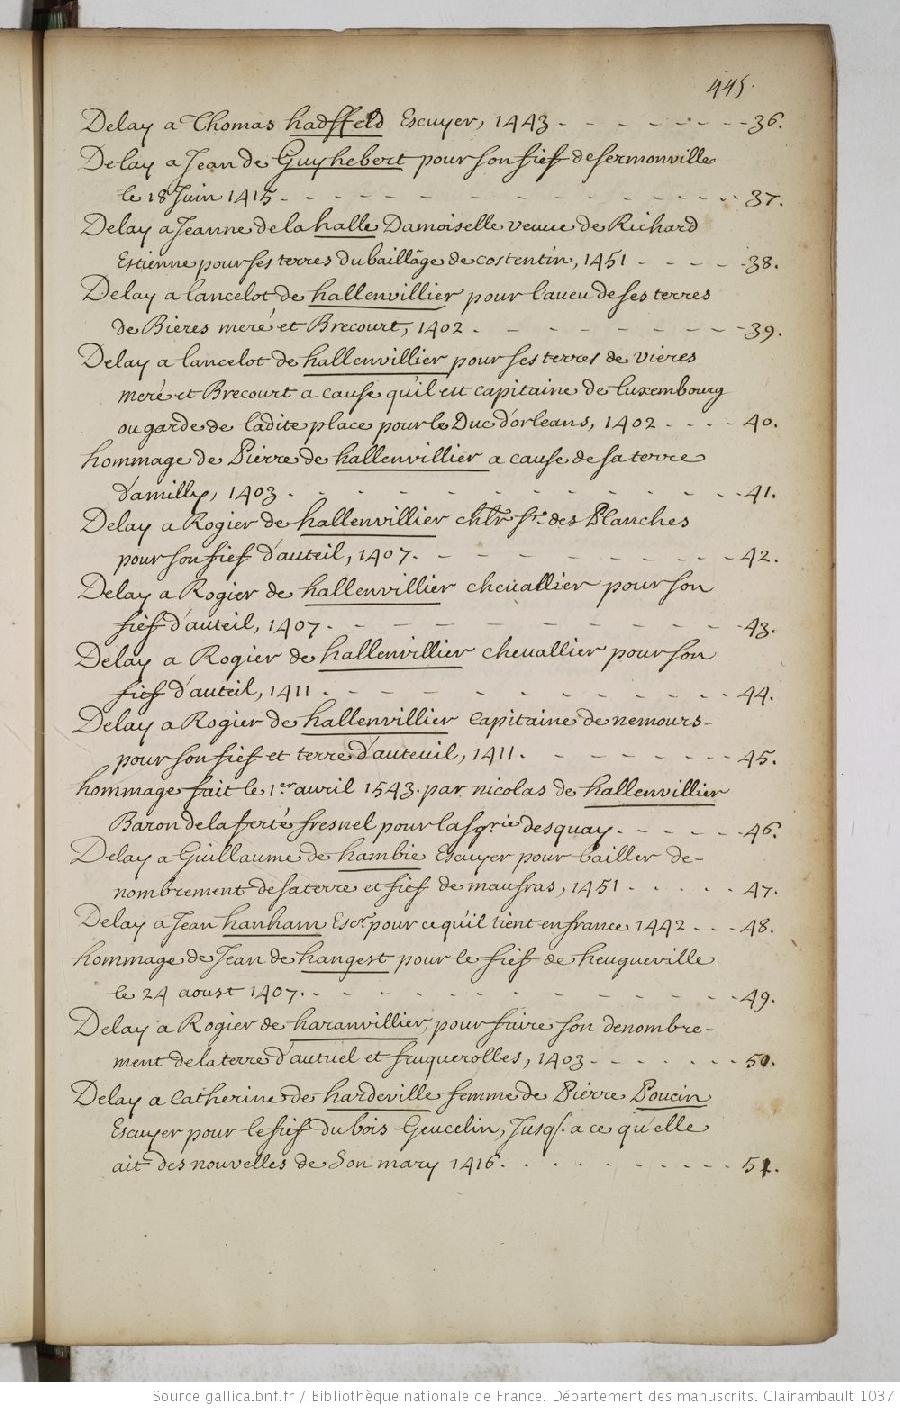 445.
Delay a Thomas hadffeld Escuyer, 1443 - - - - - - 36.
Delay a Jean de Guyhebert pour son fief de sermonville
le 18 Juin 1415 - - - - - - 37.
Delay a Jeanne de la halle Damoiselle veuue de Richard
Estienne pour ses terres du bailliage de costentin, 1451 - - - - 38.
Delay a lancelot de hallenvillier pour l'aueu de ses terres
de Bieres meré et Brecourt, 1402 - - - - - - 39.
Delay a lancelot de hallenvillier pour ses terres de vieres
meré et Brecourt a cause qu'il est capitaine de luxembourg
ou garde de ladite place pour le Duc d'orleans, 1402 - - - - 40.
hommage de Pierre de hallenvillier a cause de sa terre
d'amilly, 1403 - - - - - - 41.
Delay a Rogier de hallenvillier chlr sr. des Planches
pour son fief d'auteil, 1407 - - - - - - 42.
Delay a Rogier de hallenvillier cheuallier pour son
fief d'auteil, 1407 - - - - - - 43.
Delay a Rogier de hallenvillier cheuallier pour son
fief d'auteil, 1411 - - - - - - 44.
Delay a Rogier de hallenvillier capitaine de nemours
pour son fief et terre d'auteuil, 1411 - - - - - - 45.
hommage fait le 1er. avril 1543. par nicolas de hallenvillier
Baron de la ferté fresnel pour la sgrie desquay - - - - - 46.
Delay a Guillaume de hambie Escuyer pour bailler de-
nombrement de sa terre et fief de maufras, 1451 - - - - - 47.
Delay a Jean hanham Escr. pour ce qu'il tient en france, 1442 - - - 48.
hommage de Jean de hangest pour le fief de heugueville
le 24 aoust 1407 - - - - - - 49.
Delay a Rogier de haranvillier, pour faire son denombre-
ment de la terre d'autuel et fruquerolles, 1403 - - - - - - 50.
Delay a Catherine de hardeville femme de Pierre Poucin
Escuyer pour le fief du bois Geucelin, Jusq. a ce qu'elle
ait des nouvelles de Son mary 1416 - - - - - - 51.
Source gallica.bnf.fr / Bibliothèque nationale de France. Département des manuscrits. Clairambault 1037